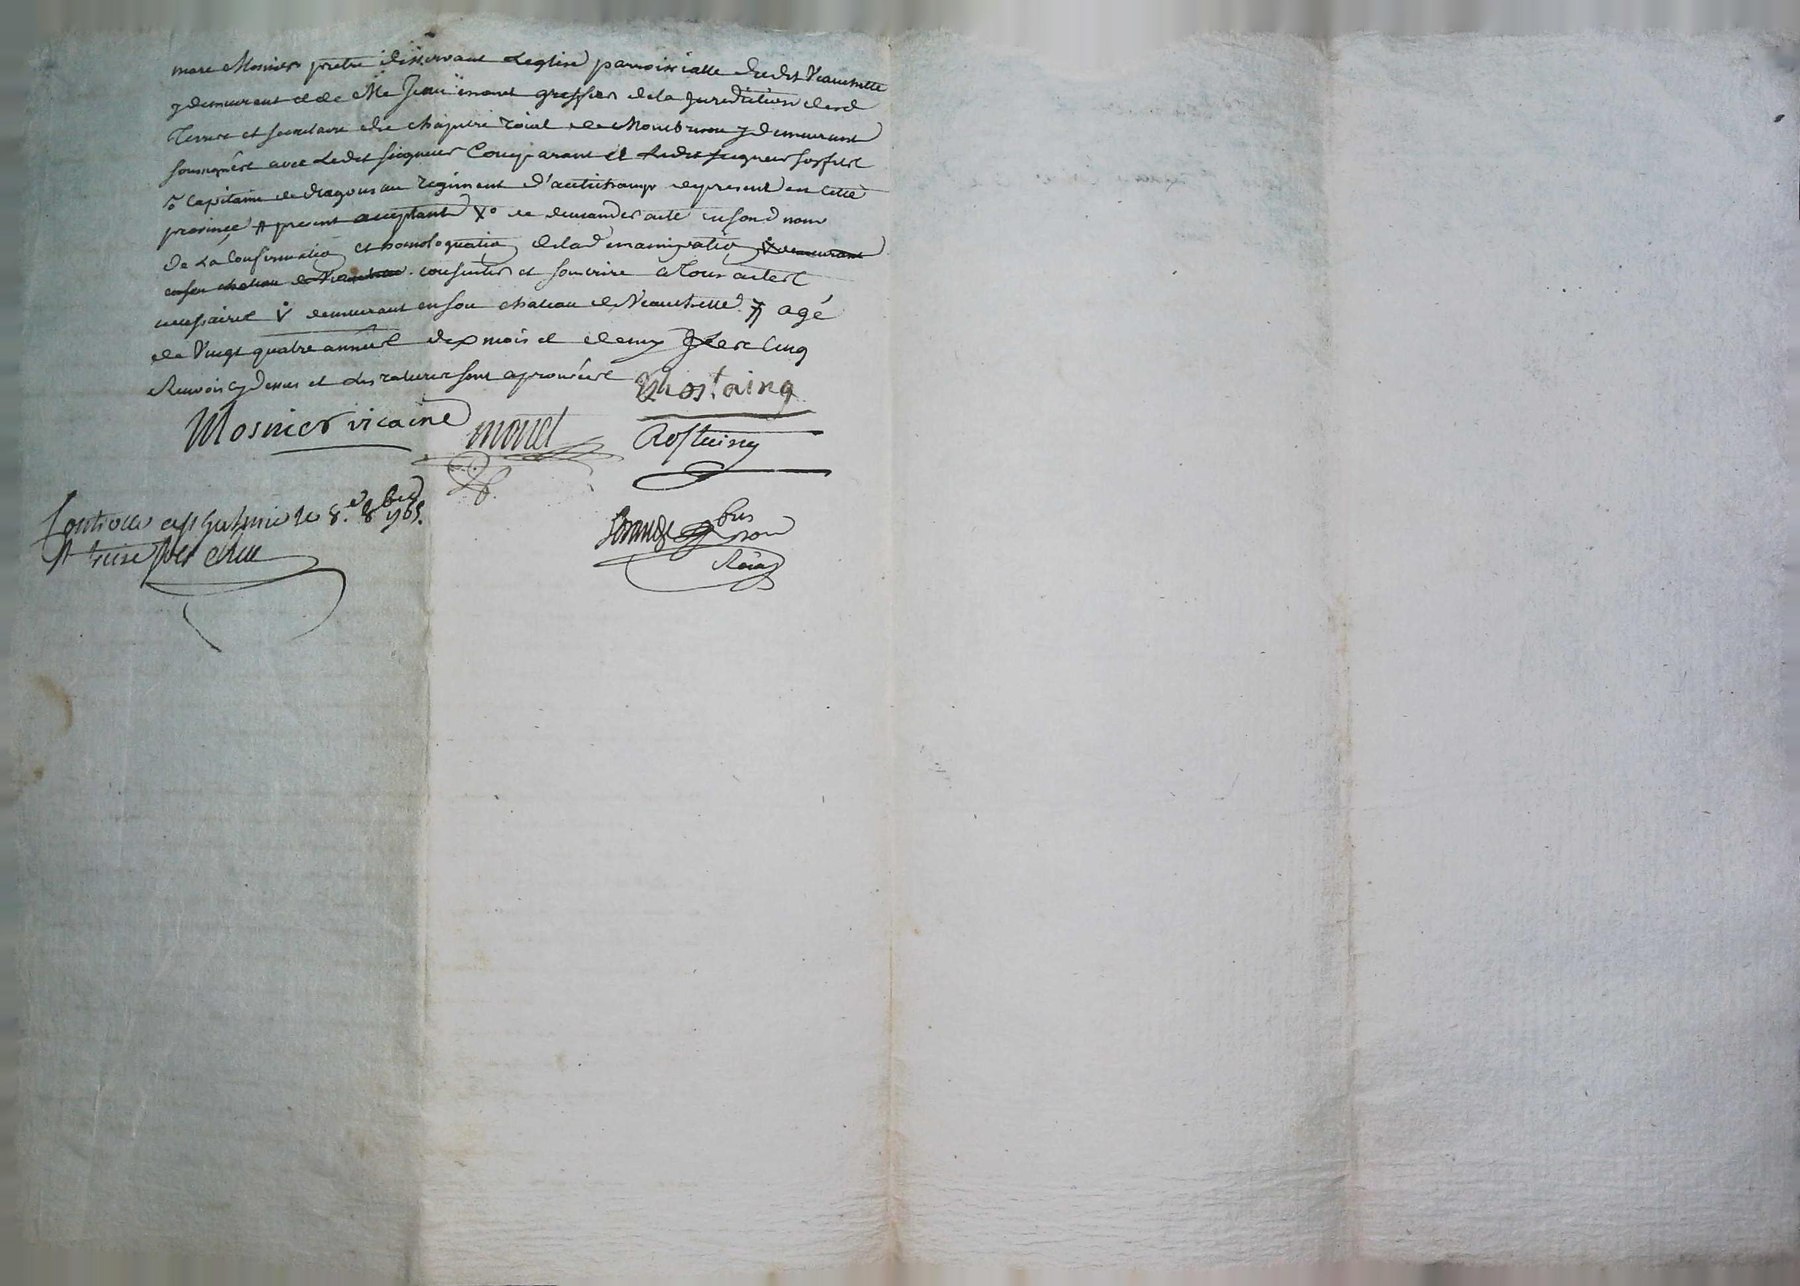 marc Mosnier pretre desservant Leglise paroissialle dudit Veauchette
y demeurant et de Me Jean morel greffier de la Jurediction dud
Terrier et secretaire du chapitre roial de Montbrison y demeurant
soussignés avec Ledit seigneur Comparant et Ledit seigneur son fils
capitaine de dragons au regiment d'autichamp depresent en cette
province # present acceptant X° de demander acte en son nom
de La Confirmation et homologuation de lad emancipation demeurant
en son chateau de Veauchette consentir et souscrire a tous actes
necessaires V demeurant en son chateau de Veauchette # agé
de Vingt quatre années dix mois et demy Les Cinq
Renvois cy dessus et les ratures sont aprouvées
Rostaing
Mosnier vicaire
morel
Rostaing
Controllé a le 8.e 8bre 1765.
Rt treize sols